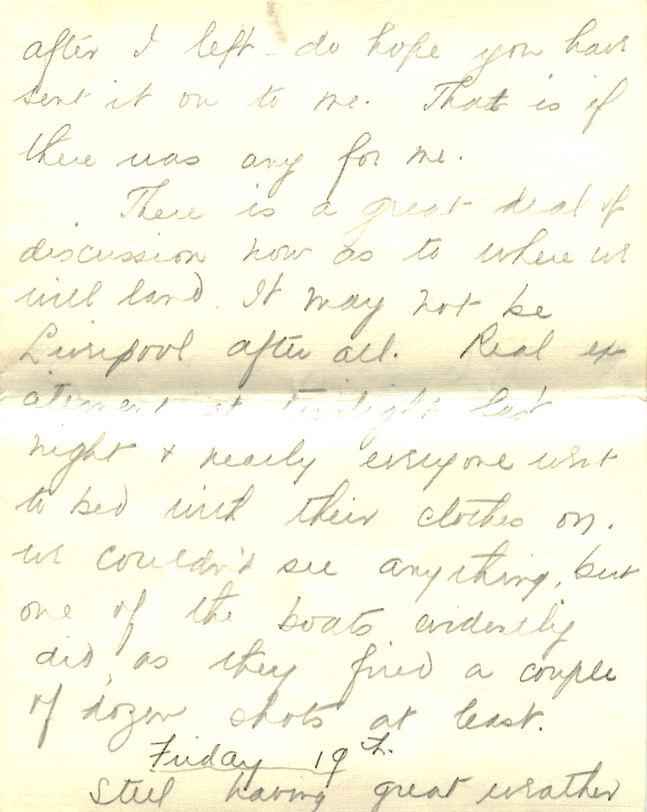 after I left - do hope you have
sent it on to me. That is if
there was any for me.
There is a great deal of
discussion now as to where we
will land. It may not be
Liverpool after all. Real ex
citement at twilight last
night & nearly everyone went
to bed with their clothes on.
we couldn't see anything, but
one of the boats evidently
did, as they fired a couple
of dozen shots at least.
Friday 19th.
Still having great weather